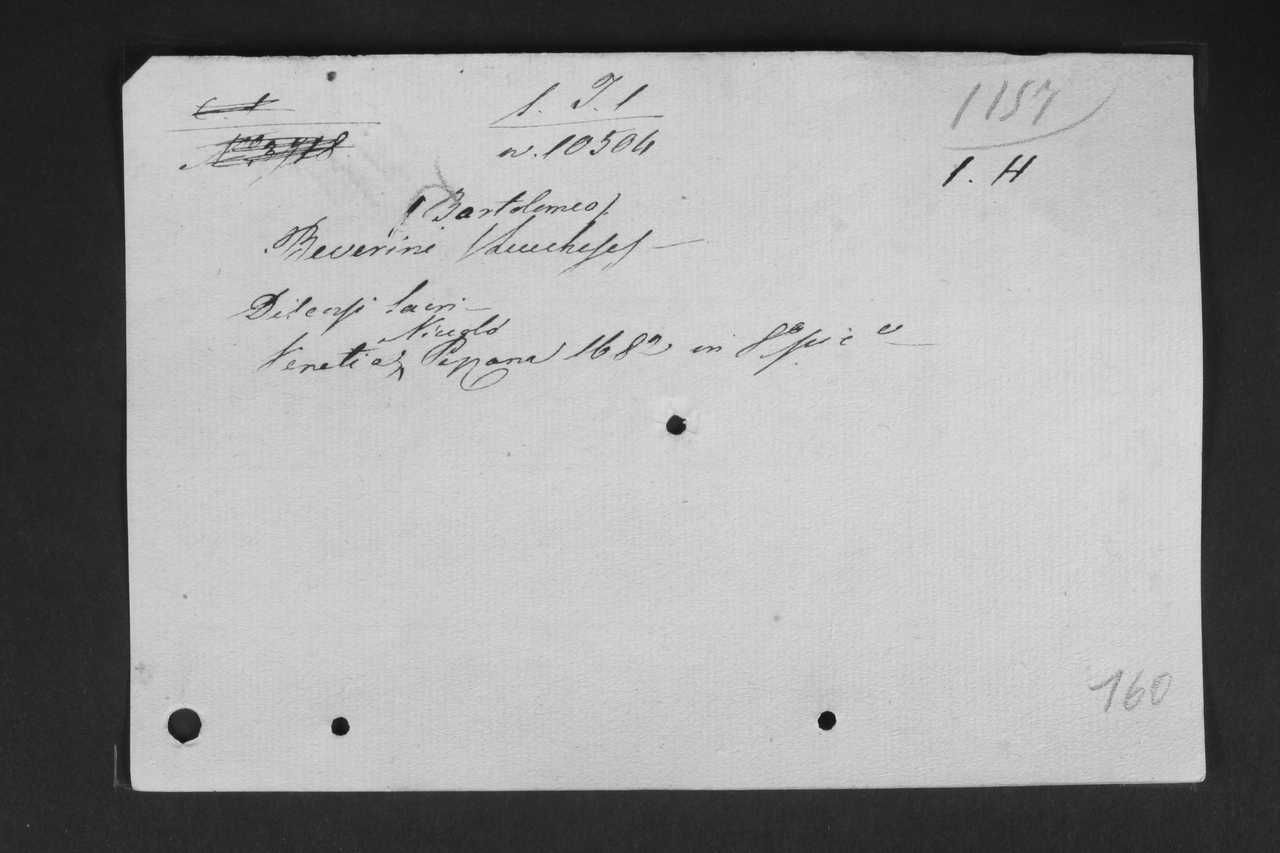 1. J. 1
1157
n. 10504
1. H
(Bartolomeo)
Beverini Lucchese
Discorsi sacri
Nicolò
Venetia, Pezzana 1682 in 8°
160